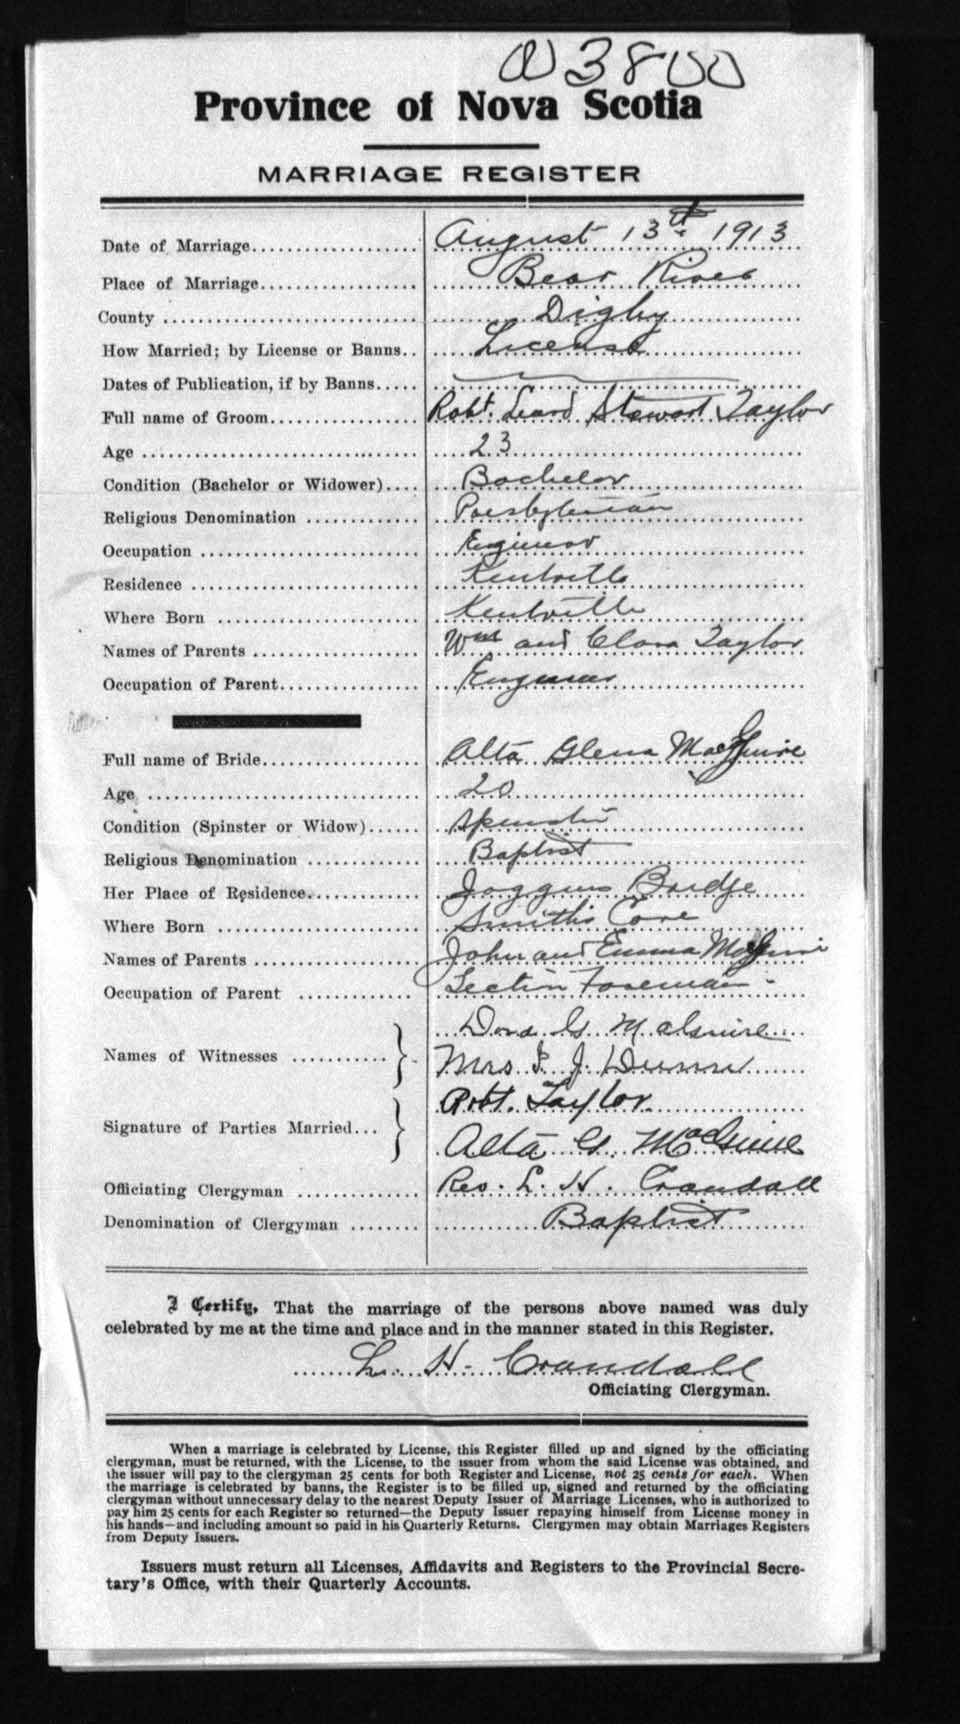 3800
Province of Nova Scotia
MARRIAGE REGISTER
Date of Marriage.................. August 13th 1913
Place of Marriage.................. Bear River
County ............................ Digby
How Married; by License or Banns.. License
Dates of Publication, if by Banns.....
Full name of Groom................. Robt. Stewart Taylor
Age ............................... 23
Condition (Bachelor or Widower).... Bachelor
Religious Denomination ............ Presbyterian
Occupation ........................ Engineer
Residence ......................... Kentville
Where Born ........................ Kentville
Names of Parents .................. Wm and Clara Taylor
Occupation of Parent............... Engineer
Full name of Bride.................. Alta Glena MacGuire
Age ............................... 20
Condition (Spinster or Widow)...... Spinster
Religious Denomination ............ Baptist
Her Place of Residence............. Joggins Bridge
Where Born ........................ Smith's Cove
Names of Parents .................. John and Emma MacGuire
Occupation of Parent .............. Section Foreman
Dora G. MacGuire
Names of Witnesses ...........
Mrs J. Dunn
Robt. Taylor
Signature of Parties Married...
Alta G. MacGuire
Officiating Clergyman ............. Rev. L. H. Crandall
Denomination of Clergyman ........ Baptist
I Certify, That the marriage of the persons above named was duly
celebrated by me at the time and place and in the manner stated in this Register.
L. H. Crandall
Officiating Clergyman.
When a marriage is celebrated by License, this Register filled up and signed by the officiating
clergyman, must be returned, with the License, to the issuer from whom the said License was obtained, and
the issuer will pay to the clergyman 25 cents for both Register and License, not 25 cents for each. When
the marriage is celebrated by banns, the Register is to be filled up, signed and returned by the officiating
clergyman without unnecessary delay to the nearest Deputy Issuer of Marriage Licenses, who is authorized to
pay him 25 cents for each Register so returned—the Deputy Issuer repaying himself from License money in
his hands—and including amount so paid in his Quarterly Returns. Clergymen may obtain Marriages Registers
from Deputy Issuers.
Issuers must return all Licenses, Affidavits and Registers to the Provincial Secre-
tary's Office, with their Quarterly Accounts.